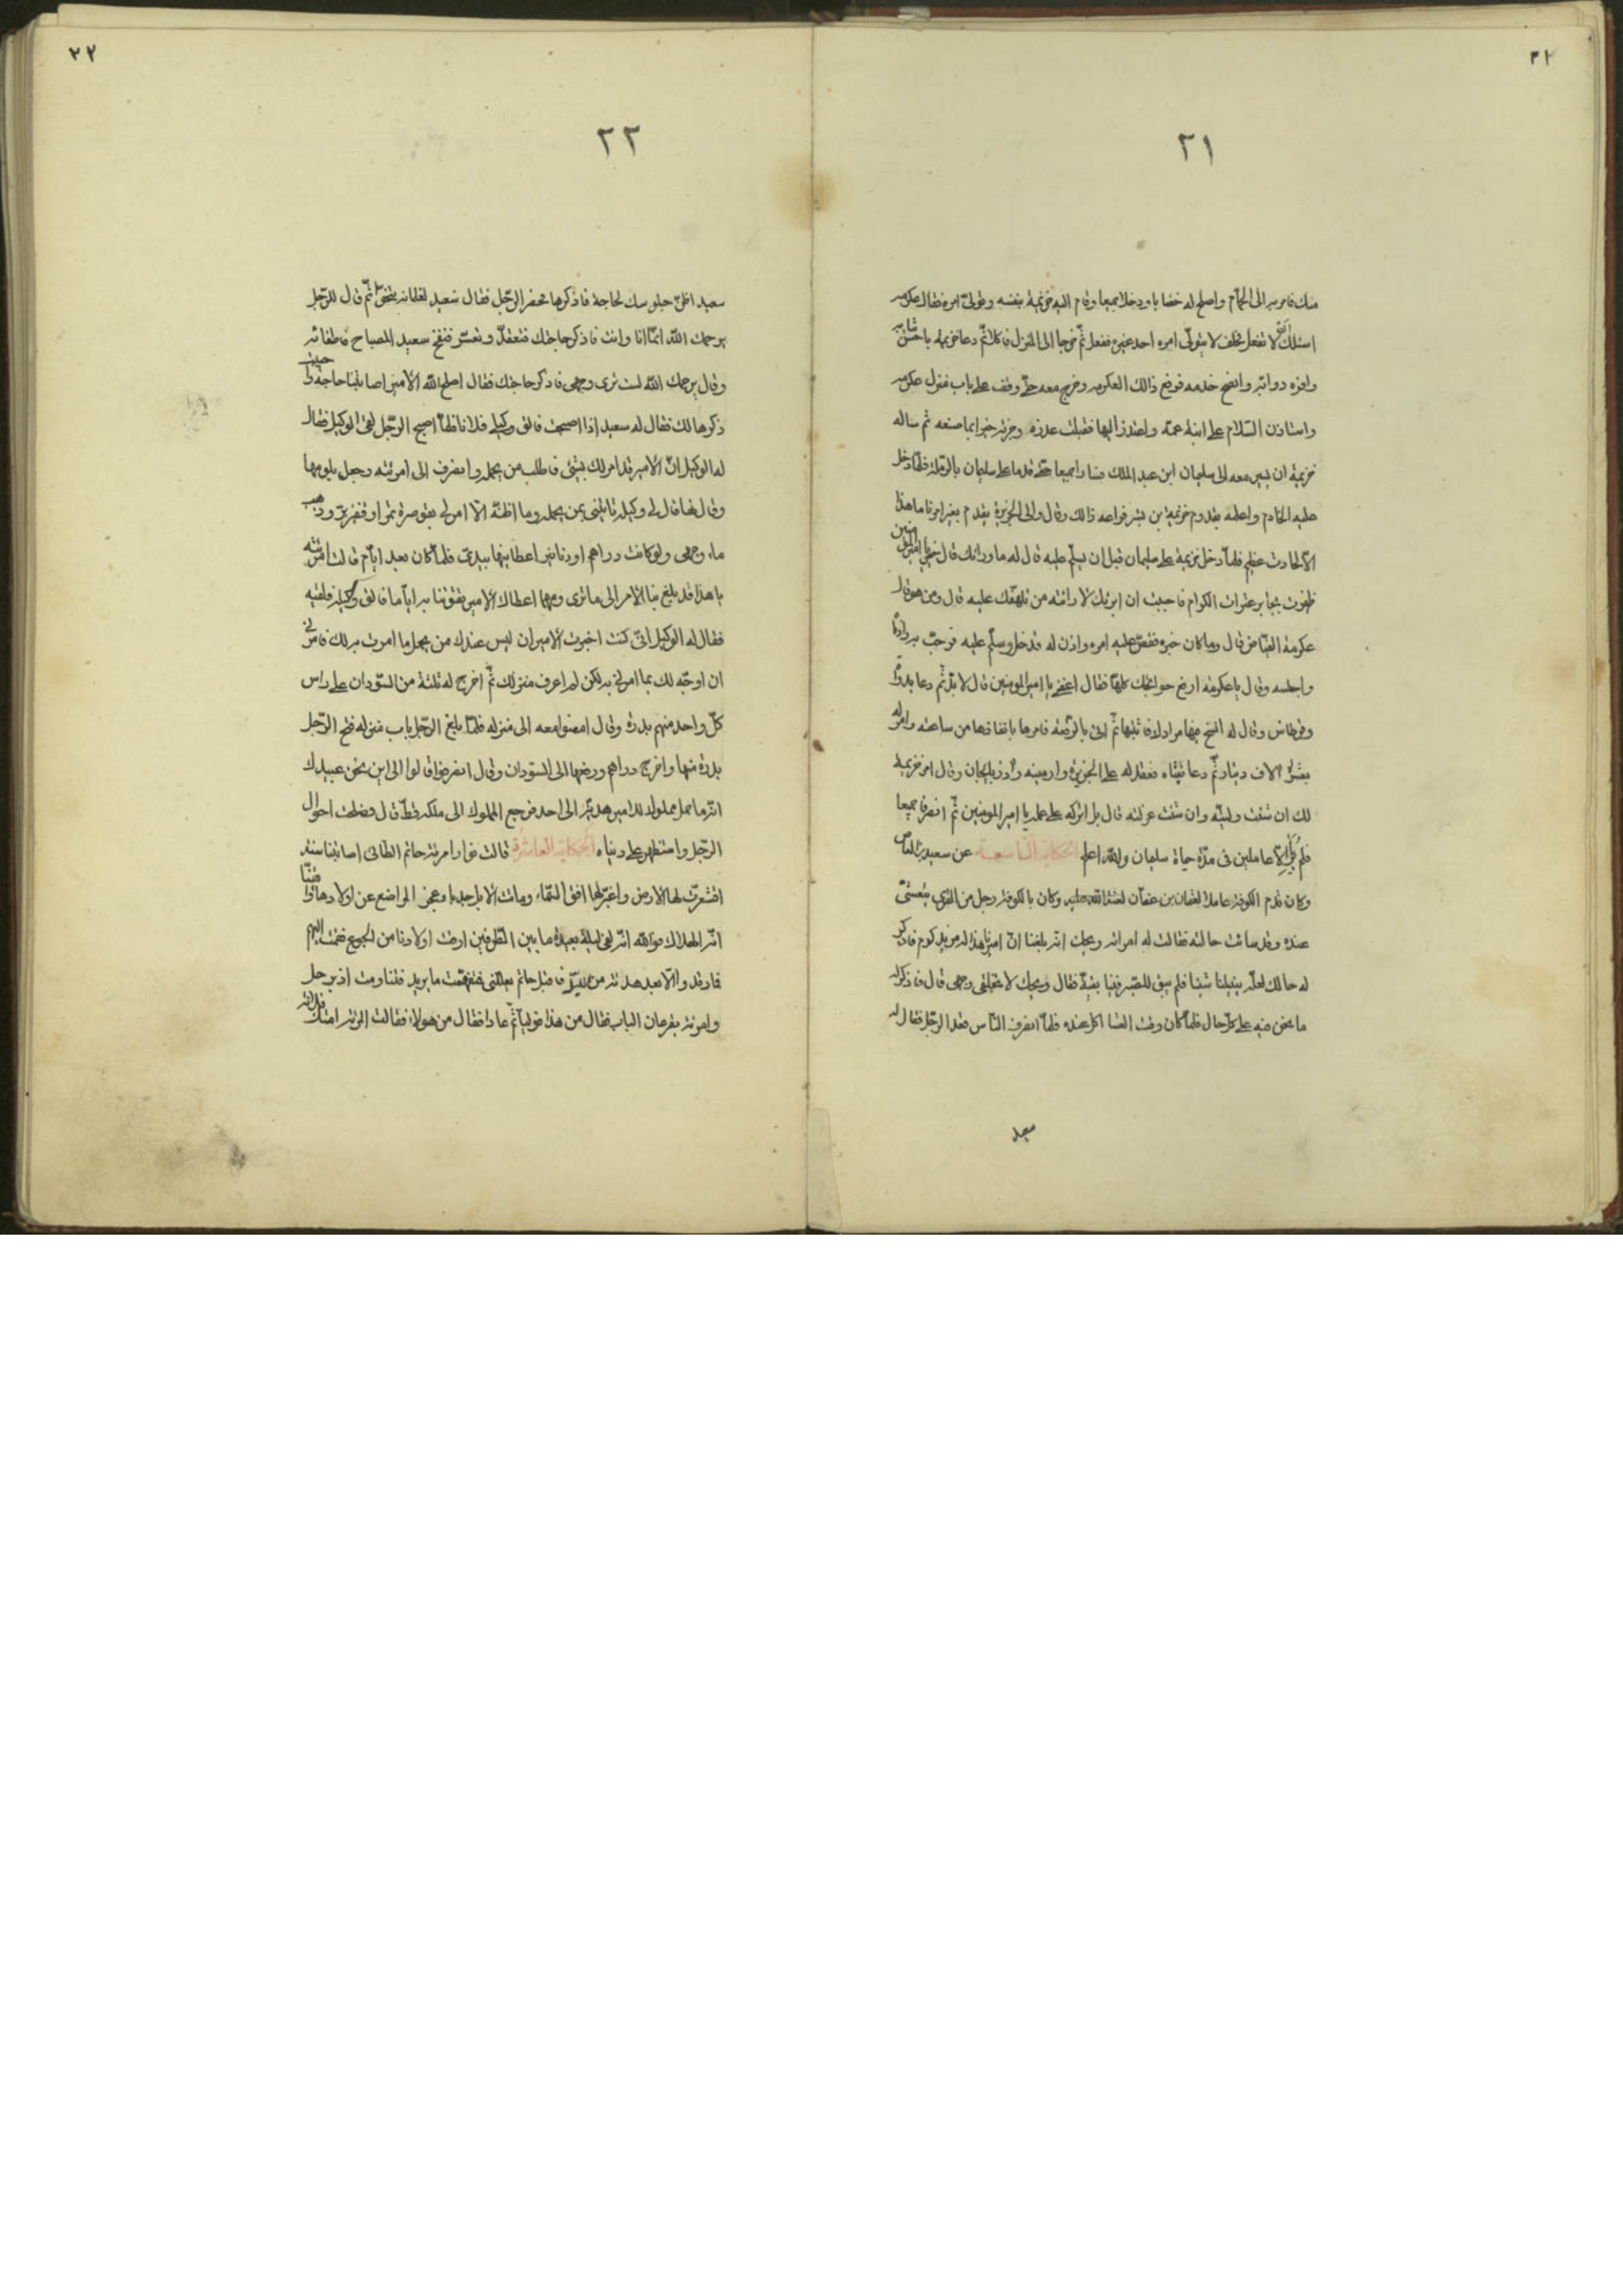 ٢١
٢١
منك فامر به الى الحمام واصلح له خضابا ودخلا جميعا وقام اليه خزيمة بنفسه وتولى امره فقال عكرمه
اسئلك لا تفعل فحلف لا يتولى امره احد غيره ففعل ثم خرجا الى المنزل فاكلا ثم دعا خزيمة باحسن ثيابه
وافره دوابه وانصح خدمه فدفع ذالك العكرمه وخرج معه حتى وقف على باب منزل عكرمه
واستاذن السلام على ابنة عمه واعتذر اليها فقبلت عذره وجزته خيرا بما صنعه ثم ساله
خزيمة ان يسير معه الى سليمان ابن عبد الملك فسارا جميعا حتى قدما على سليمان بالرملة فلما دخل
عليه الخادم واعلمه بقدوم خزيمة بن بشر فراعه ذالك وقال والى الجزيرة يقدم بغير امرنا ما هذا
الا لحادث عظيم فلما دخل خزيمة على سليمان قبل ان يسلم عليه قال له ما ورائك قال خير يا امير المؤمنين
ظفرت بجابر عثرات الكرام فاحببت ان اريك لا رائته من تلهفك عليه قال ومن هو قال
عكرمة الفياض قال وما كان خبره فقص عليه امره واذن له فدخل وسلم عليه فرحب به وادناه
واجلسه وقال يا عكرمة ارفع حوائجك كلها فقال اعفنى يا امير المومنين قال لا بد ثم دعا بدواة
وقرطاس وقال له
بعشرة الاف دينار ثم دعا بقناه فعقد له على الجزيرة وارمينه واذربايجان وقال امر خزيمة
لك ان شئت وليته وان شئت عزلته قال بل اتركه على عمله يا امير المومنين ثم انصرفا جميعا
فلم يزالا عاملين فى مدة حياة سليمان والله اعلم الحكاية التاسعة عن سعيد بن العاص
وكان قدم الكوفة عاملا لعثمان بن عفان وكان بالكوفة رجل من القرى يتعشى
عنده وقد سائت حالته فقالت له امراته ويحك انه بلغنا ان اميرنا هذا كرم فاذكر
له حالك لعله ينيلنا شيئا فلم يبق للصبر فينا بقية فقال ويحك لا تخلقى وجهى قال فاذكر له
ما نحن فيه على كل حال فلما كان وقت العشا اكل عنده فلما انصرف الناس قعد الرجل فقال له
سعيد
٢٢
٢٢
سعيد اظن جلوسك لحاجة فاذكرها فحصر الرجل فقال سعيد لغلمانه تنحوا ثم قال للرجل
يرحمك الله انما انا وانت فاذكر حاجتك فتعقد وتعسر فنفخ سعيد المصباح فاطفائه
وقال يرحمك الله لست ترى وجهى فاذكر حاجتك فقال اصلح الله الامير اصابتنا حاجة واحببت
ذكرها لك فقال له سعيد اذا اصبحت فالق وكيلى فلانا فلما اصبح الرجل لقى الوكيل فقال
له الوكيل ان الامير قد امر لك بشئ فاطلب من يحمله وانصرف الى امرئته وجعل يلومها
وقال لها قال لى وكيله تاتينى بمن يحمله وما اظنه الا امر لى بقوصرة تمر او قفيز بر وذهب
ماء وجهى ولو كانت دراهم او دنانير اعطانيها بيدى فلما كان بعد ايام قالت امرئته
يا هذا قد بلغ بنا الامر الى ما ترى ومهما اعطاك الامير يقوتنا به اياما فالق وكيله فلقيه
فقال له الوكيل انى كنت اخبرت الامير ان ليس عندك من يحمل ما امرت به لك فامرنى
ان اوجه لك بما امر لى به لكن لم اعرف منزلك ثم اخرج له ثلثة من السودان على راس
كل واحد منهم بدرة وقال امضوا معه الى منزله فلما بلغ الرجل باب منزله فتح الرجل
بدرة منها واخرج دراهم ودفعها الى السودان وقال انصرفوا قالوا الى اين نحن عبيدك
انه ما حمل مملوك للامير هدية الى احد فرجع المملوك الى ملكه قط قال فصلحت احوال
الرجل واستظهر على دنياه الحكاية العاشرة قالت نوار امرئة حاتم الطائى اصابتنا سنة
اقشعرت لها الارض واغبر لها افق السماء وماتت الابل جدبا وعجز المراضع عن اولادها وايقنا
انه الهلاك فوالله انه لفى ليلة بعيدة ما بين الطرفين ارقت اولادنا من الجوع فقمت اليهم
فارقدوا الا بعد هدئة من الليل فاقبل حاتم يعللنى ففهمت ما يريد فتناومت اذ برجل
وامرئة يقرعان الباب فقال من هذا فوليا ثم عادا فقال من هولاء فقالت المرئة امتك فلانة